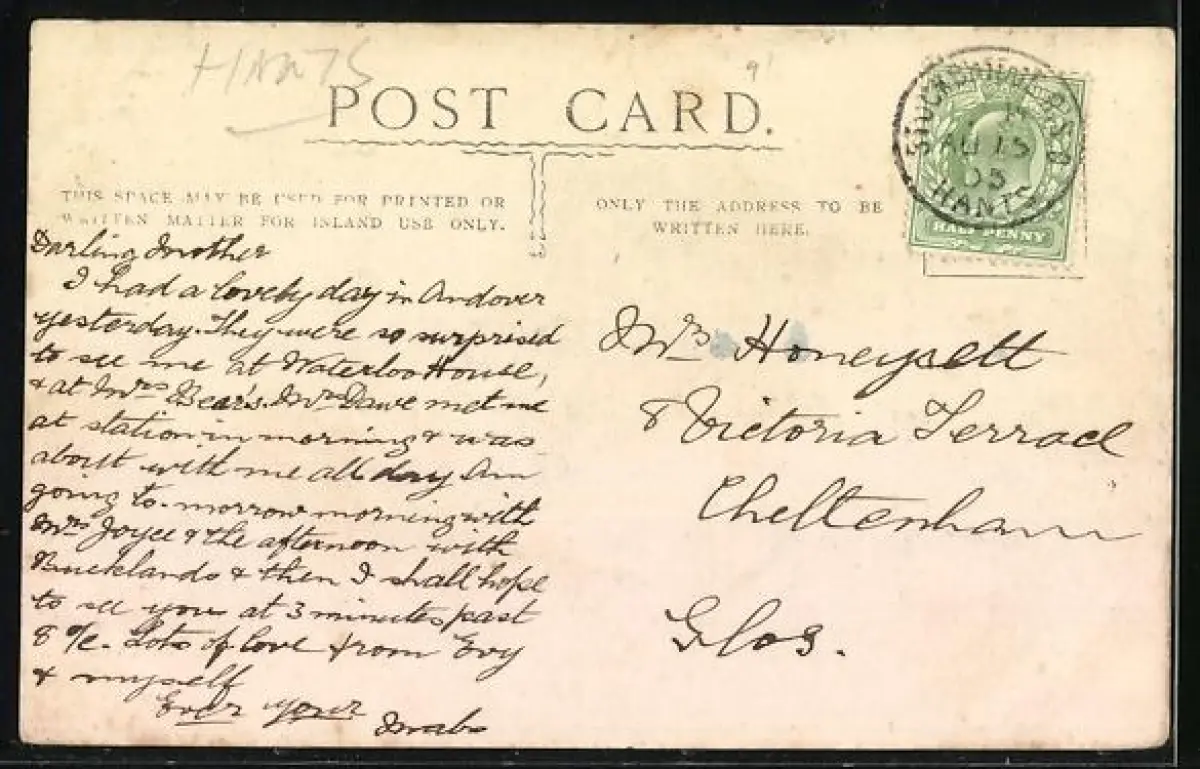 HANTS
POST CARD.
THIS SPACE MAY BE USED FOR PRINTED OR
WRITTEN MATTER FOR INLAND USE ONLY.
ONLY THE ADDRESS TO BE
WRITTEN HERE.
STOCKBRIDGE R.S.O
AU 15
05
HANTS
HALFPENNY
Darling Mother
I had a lovely day in Andover
yesterday. They were so surprised
to see me at Waterloo House,
& at Mrs Bear's. Mrs Dawe met me
at station in morning & was
about with me all day Am
going to-morrow morning with
Mrs Joyce & the afternoon with
Bucklands & then I shall hope
to see you at 3 minutes past
8 Lots of love from Evy
& myself
Ever your
Mab
Mrs Honeysett
8 Victoria Terrace
Cheltenham
Glos.